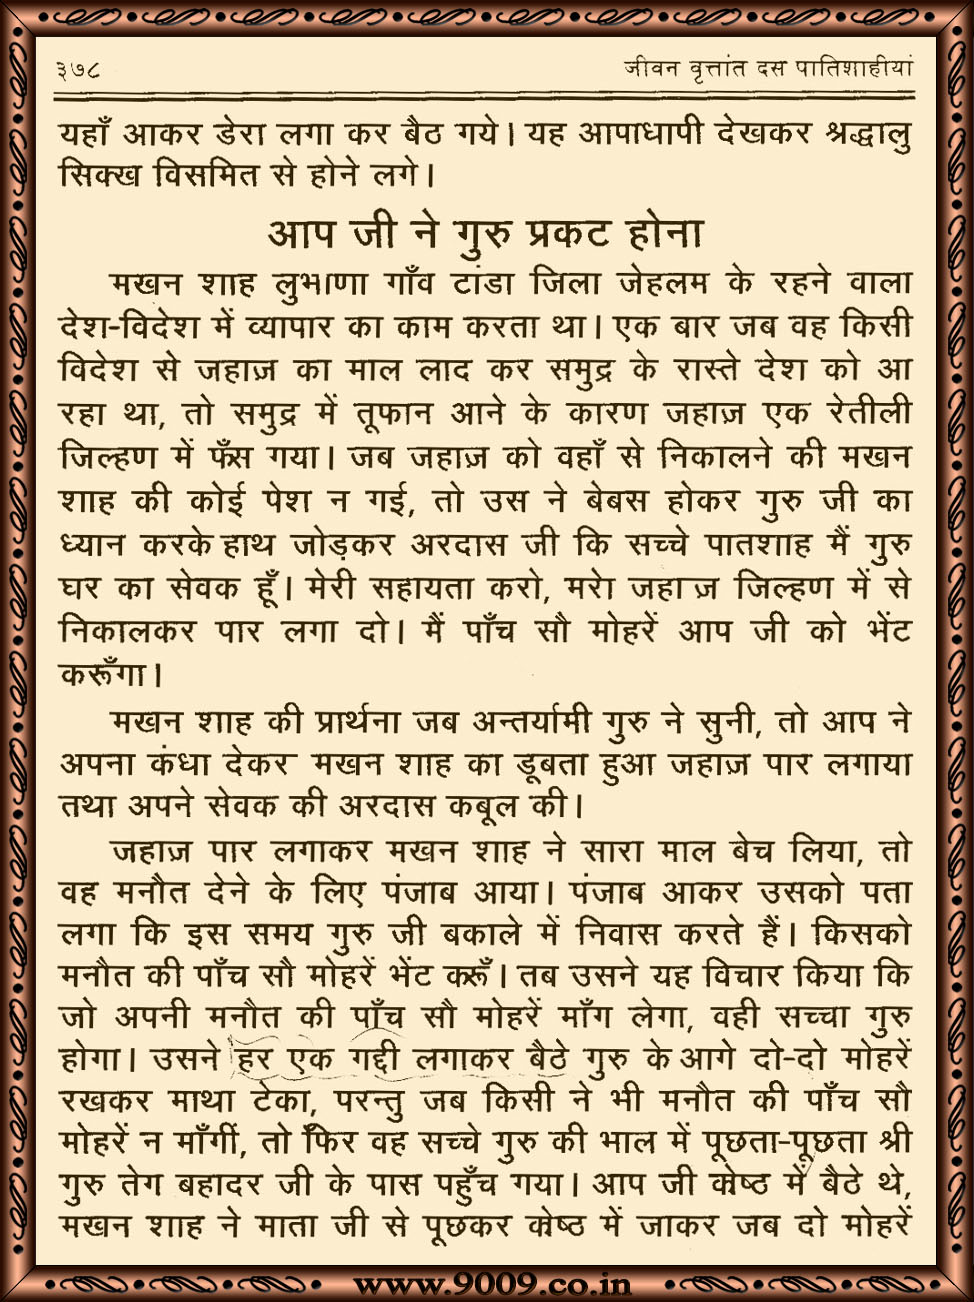 ३७८ जीवन वृत्तांत दस पातिशाहीयां
यहाँ आकर डेरा लगा कर बैठ गये। यह आपाधापी देखकर श्रद्धालु
सिक्ख विसमित से होने लगे।
आप जी ने गुरु प्रकट होना
मखन शाह लुभाणा गाँव टांडा जिला जेहलम के रहने वाला
देश-विदेश में व्यापार का काम करता था। एक बार जब वह किसी
विदेश से जहाज़ का माल लाद कर समुद्र के रास्ते देश को आ
रहा था, तो समुद्र में तूफान आने के कारण जहाज़ एक रेतीली
जिल्हण में फँस गया। जब जहाज़ को वहाँ से निकालने की मखन
शाह की कोई पेश न गई, तो उस ने बेबस होकर गुरु जी का
ध्यान करके हाथ जोड़कर अरदास जी कि सच्चे पातशाह मैं गुरु
घर का सेवक हूँ। मेरी सहायता करो, मरेा जहाज़ जिल्हण में से
निकालकर पार लगा दो। मैं पाँच सौ मोहरें आप जी को भेंट
करूँगा।
मखन शाह की प्रार्थना जब अन्तर्यामी गुरु ने सुनी, तो आप ने
अपना कंधा देकर मखन शाह का डूबता हुआ जहाज़ पार लगाया
तथा अपने सेवक की अरदास कबूल की।
जहाज़ पार लगाकर मखन शाह ने सारा माल बेच लिया, तो
वह मनौत देने के लिए पंजाब आया। पंजाब आकर उसको पता
लगा कि इस समय गुरु जी बकाले में निवास करते हैं। किसको
मनौत की पाँच सौ मोहरें भेंट करूँ। तब उसने यह विचार किया कि
जो अपनी मनौत की पाँच सौ मोहरें माँग लेगा, वही सच्चा गुरु
होगा। उसने हर एक गद्दी लगाकर बैठे गुरु के आगे दो-दो मोहरें
रखकर माथा टेका, परन्तु जब किसी ने भी मनौत की पाँच सौ
मोहरें न माँगीं, तो फिर वह सच्चे गुरु की भाल में पूछता-पूछता श्री
गुरु तेग बहादर जी के पास पहुँच गया। आप जी कोष्ठ में बैठे थे,
मखन शाह ने माता जी से पूछकर कोष्ठ में जाकर जब दो मोहरें
www.9009.co.in